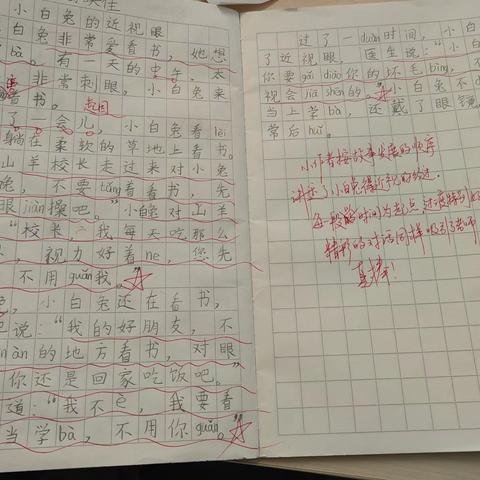 小白兔的近视眼
白兔非常爱看书，她想
bà。有一天的中午，太
非常刺眼，小白兔来
看书。
了一会儿，小白兔看lèi
躺在柔软的草地上看书。
山羊校长走过来对小兔
兔，不要tǎng着看书，先
眼jiàn操吧。”小白兔对山羊
“校长，我每天吃那么
，视力好着ne，您先
不用guǎn我。”
，小白兔还在看书，
说：“我的好朋友，不
àn的地方看书，对眼
你还是回家吃饭吧。”
道：“我不è，我要看
当学bà，不用你guǎn。”
过了一duàn时间，小白
了近视眼，医生说：“小白
你要gǎi diào你的坏毛bìng，不
视会jiā shēn的。”小白兔不
当上学bà，还戴了眼镜
常后huǐ。
小作者按故事发展的顺序
讲述了小白兔得近视的经过，
每一段以时间为起点，过渡特别好
精彩的对话同样吸引了老师
真棒！